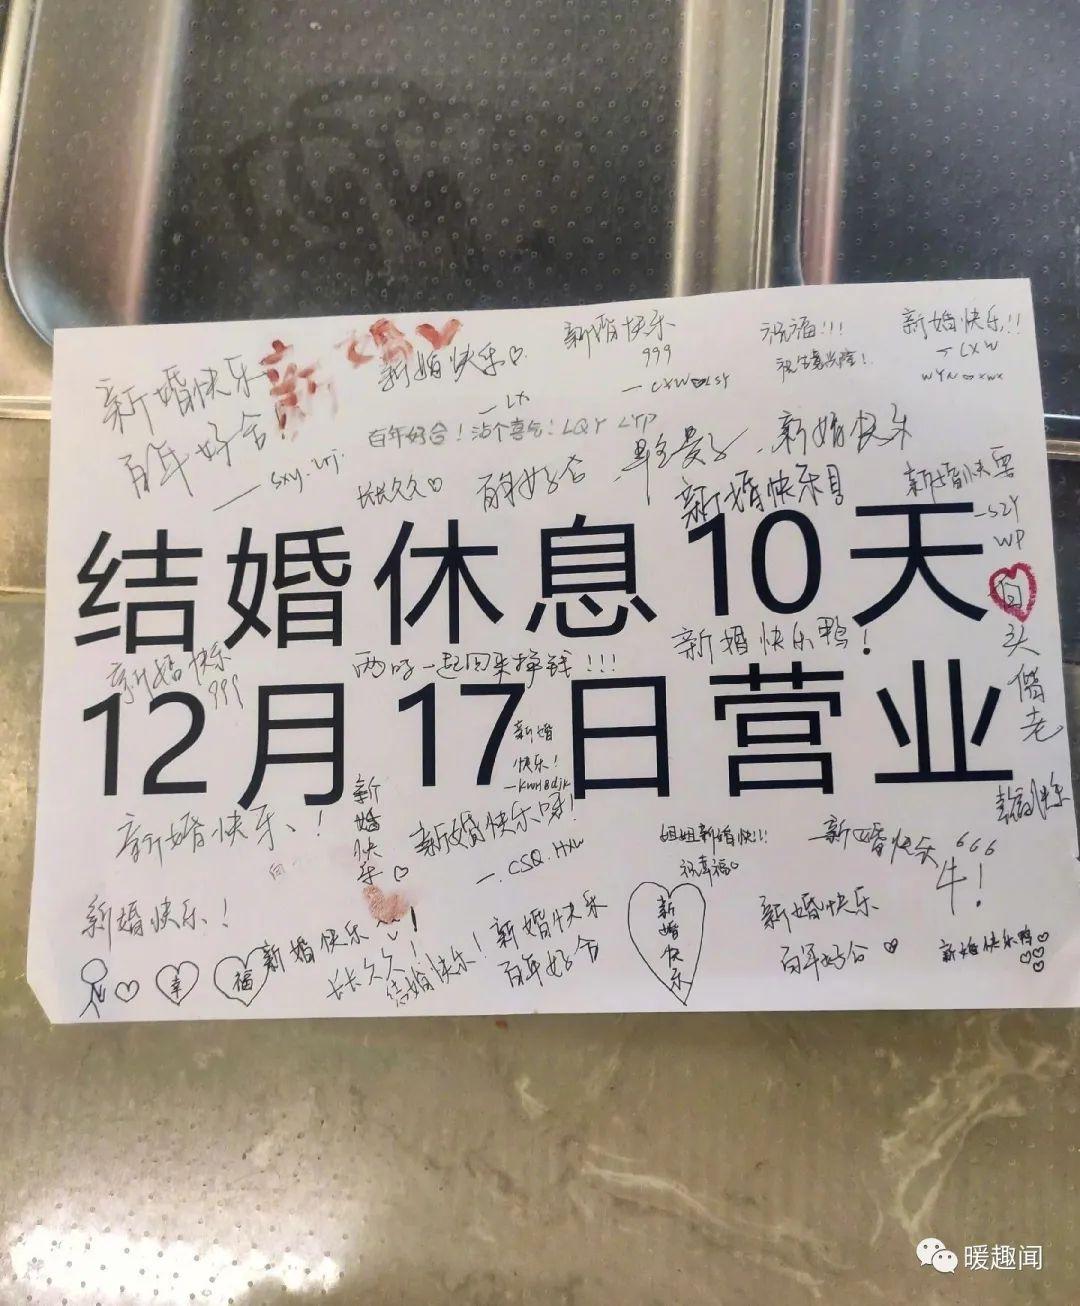 新婚快乐
百年好合!
—sxy.
新婚
新婚快乐♡
新婚快乐
999
祝福!!!
祝生意兴隆!
新婚快乐!!
—LXW
百年好合!沾个喜气!LQY LYP
长长久久♡
百年好合
新婚快乐
新婚快乐
新婚快
—SZY
WP
结婚休息10天
白头偕老
新婚快乐
999
两口一起回来挣钱!!!
新婚快乐鸭!
12月17日营业
新婚
快乐!
新婚快乐!
新婚快乐♡
新婚快乐呀!
—CSQ.HXW
姐姐新婚快!!
祝幸福♡
新婚快乐
666
牛!
新婚快乐!
♡幸福
新婚快乐
长长久久!
结婚快乐!
新婚快乐
百年好合
新婚快乐
新婚快乐
百年好合♡
新婚快乐鸭♡
暖趣闻